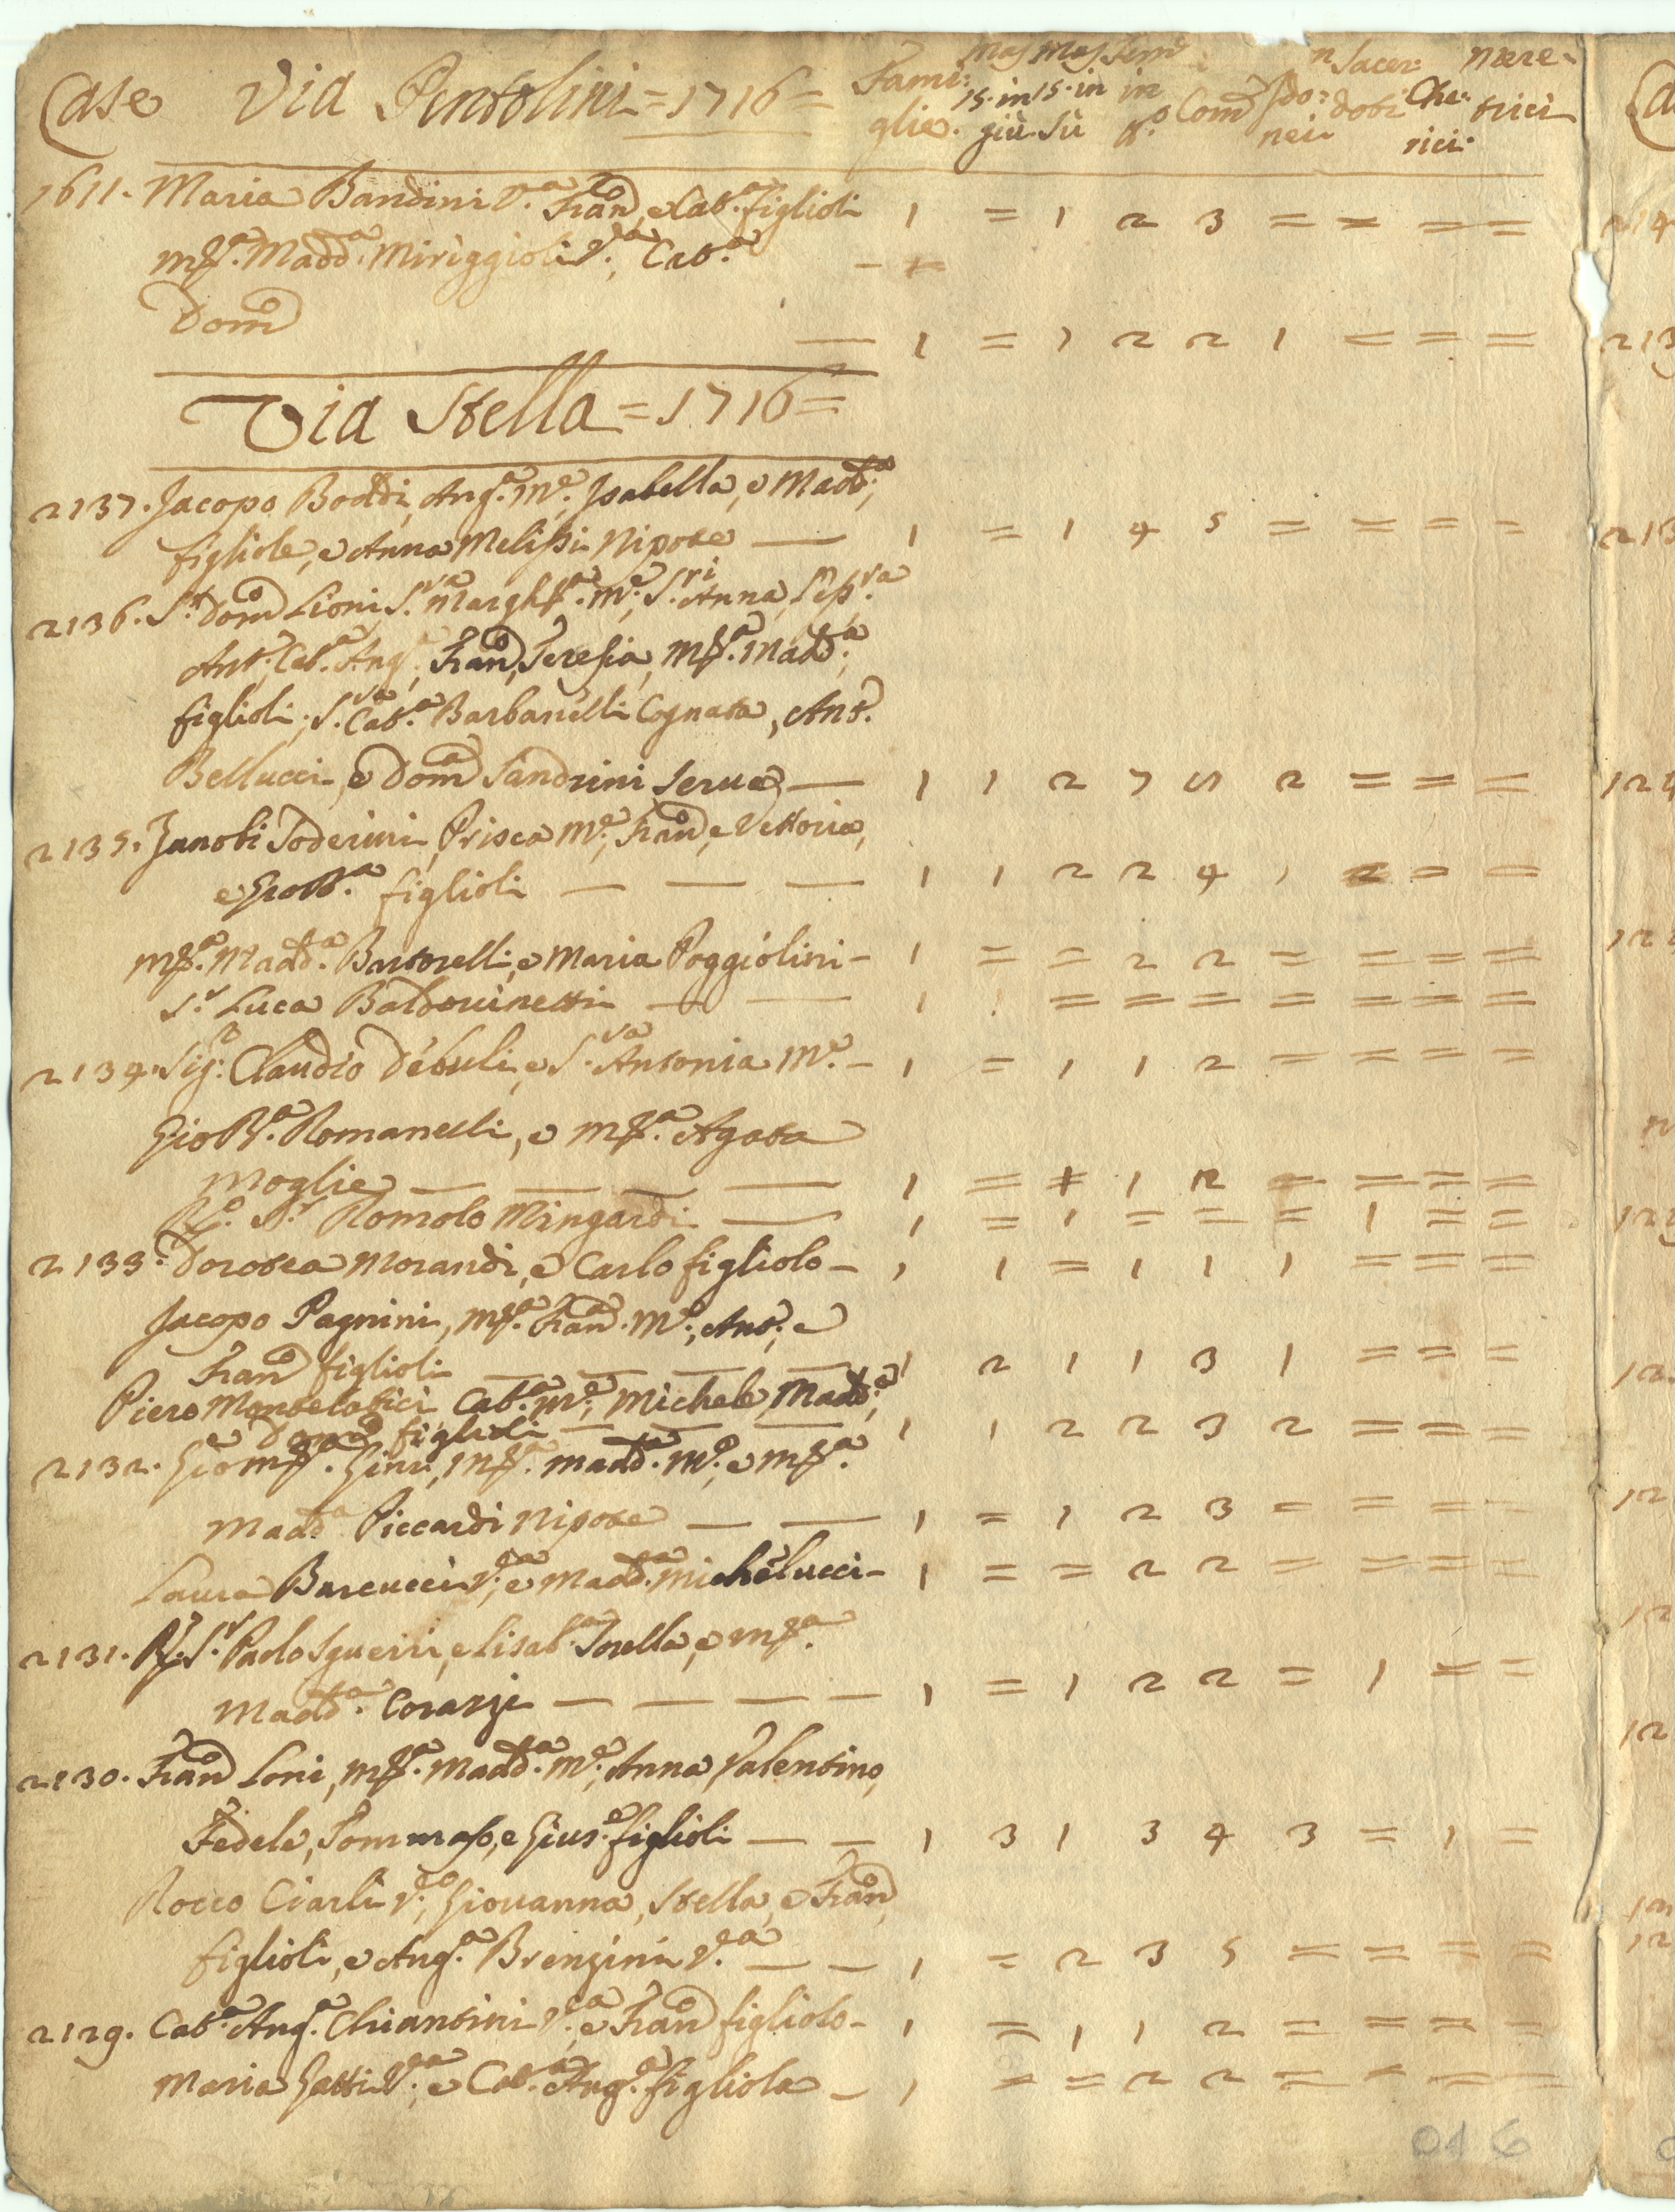 Case Via Pentolini = 1716 = Fami: glie. Mas 15. in giù Mas 15. in sù Fem in n.o Com non Ido: nei Sacer: doti Che: rici Mere: trici
1611. Maria Bandini V.a Fran.co, e Cat.a figlioli 1 = 1 2 3 = = = =
M.a Madd.a Miriggioli V.a, Cat.a
Dom.o — 1 = 1 2 2 1 = = =
Via Stella = 1716 =
2137. Jacopo Boddi, Ang.a M.e, Isabella, e Madd.a,
figliole, e Anna Melissi Nipote — 1 = 1 4 5 = = = =
2136. S.r Dom.o Lioni, S.ra Margh.ta M.e, S.ri Anna,
Ant.o, Cat.a Ang.a, Fran.o, Teresia, M.a Madd.a,
figlioli, S.ra Cat.a Barbanelli Cognata, Ant.
Bellucci, e Dom.a Sandrini Serue, — 1 1 2 7 5 2 = = =
2135. Zanobi Toderini, Prisca M.e, Fran.o, e Vettoria,
e Gio B.a figlioli — — — 1 1 2 2 4 1 = = =
M.a Madd.a Bartorelli, e Maria Poggiolini — 1 = = 2 2 = = = =
S.r Luca Baldouinetti — — 1 1 = = = = = = =
2134. Sig.r Claudio Debuli, e S.ra Antonia M.e — 1 = 1 1 2 = = = =
Gio B.a Romanelli, e M.a Agata
Moglie — — — — 1 = 1 1 2 = = = =
R. S.r Romolo Mingardi — 1 = 1 = = = 1 = =
2133. Dorotea Morandi, e Carlo figliolo — 1 1 = 1 1 1 = = =
Jacopo Pagnini, M.a Fran.a M.e, Ant.o, e
Fran.o figlioli — — — — 1 2 1 1 3 1 = = =
Piero Montelatici Cat.a M.e, Michele, Madd.a,
e Dom.o figlioli — — — 1 1 2 2 3 2 = = =
2132. Gio M.a Gini, M.a Madd.a M.e, e M.a
Madd.a Piccardi Nipote — — 1 = 1 2 3 = = = =
Laura Barcucci V.a, e Madd.a Michelucci — 1 = = 2 2 = = = =
2131. R. S.r Paolo Sguerri, e Lisab.a Sorella, e M.a
Madd.a Corazzi — — — — 1 = 1 2 2 = 1 = =
2130. Fran.o Loni, M.a Madd.a M.e, Anna, Valentino,
Fedele, Tommaso, e Gius.e figlioli — — 1 3 1 3 4 3 = 1 =
Rocco Ciarli V.o, Giouanna, Stella, e Fran.o,
figlioli, e Ang.a Brenzini V.a — — 1 = 2 3 5 = = = =
2129. Cat.a Ang.a Chiantini V.a, e Fran.o figliolo — 1 = 1 1 2 = = = =
Maria Gatti V.a, e Cat.a Ang.a figliola — 1 = = 2 2 = = = =
016